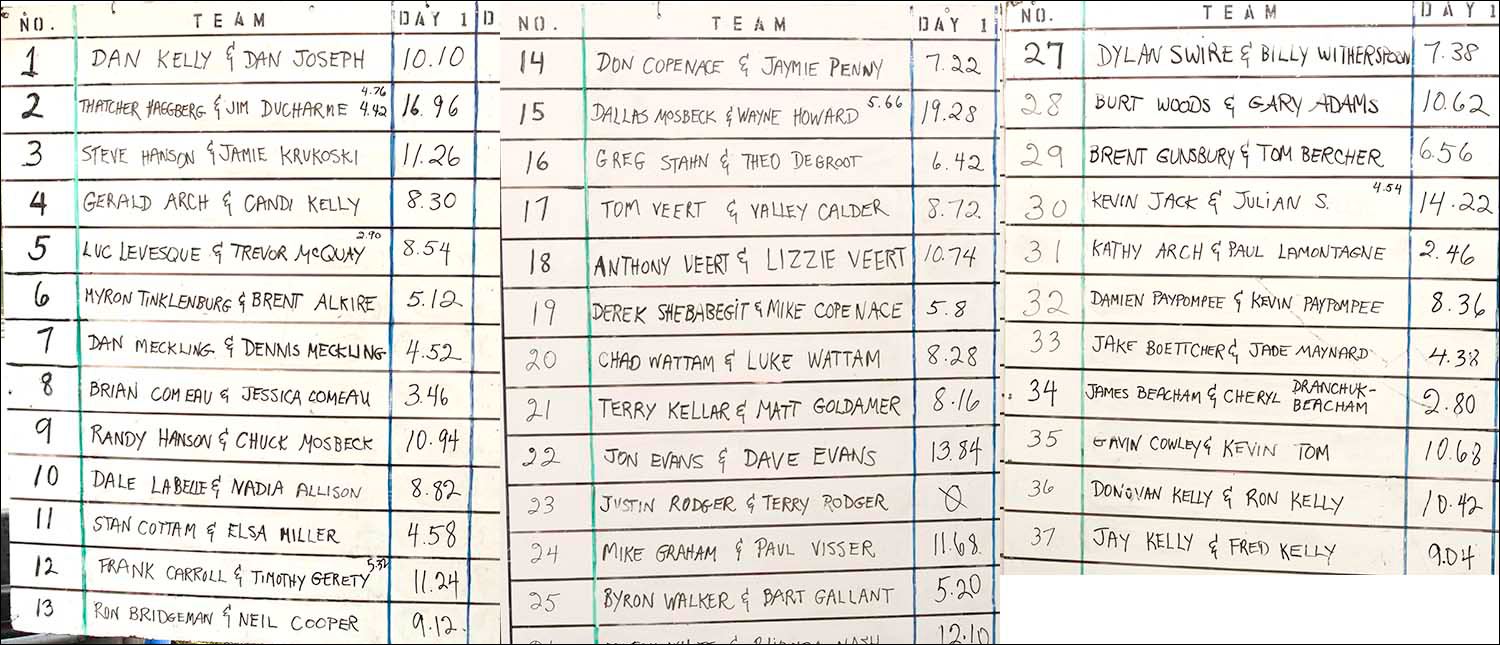 NO. TEAM DAY 1 D
1 DAN KELLY & DAN JOSEPH 10.10
2 THATCHER HAGGBERG & JIM DUCHARME 4.76 4.42 16.96
3 STEVE HANSON & JAMIE KRUKOSKI 11.26
4 GERALD ARCH & CANDI KELLY 8.30
5 LUC LEVESQUE & TREVOR McQUAY 2.90 8.54
6 MYRON TINKLENBURG & BRENT ALKIRE 5.12
7 DAN MECKLING & DENNIS MECKLING 4.52
8 BRIAN COMEAU & JESSICA COMEAU 3.46
9 RANDY HANSON & CHUCK MOSBECK 10.94
10 DALE LABELLE & NADIA ALLISON 8.82
11 STAN COTTAM & ELSA MILLER 4.58
12 FRANK CARROLL & TIMOTHY GERETY 11.24
13 RON BRIDGEMAN & NEIL COOPER 9.12
NO. TEAM DAY 1
14 DON COPENACE & JAYMIE PENNY 7.22
15 DALLAS MOSBECK & WAYNE HOWARD 5.66 19.28
16 GREG STAHN & THEO DEGROOT 6.42
17 TOM VEERT & VALLEY CALDER 8.72
18 ANTHONY VEERT & LIZZIE VEERT 10.74
19 DEREK SHEBABEGIT & MIKE COPENACE 5.8
20 CHAD WATTAM & LUKE WATTAM 8.28
21 TERRY KELLAR & MATT GOLDAMER 8.16
22 JON EVANS & DAVE EVANS 13.84
23 JUSTIN RODGER & TERRY RODGER 0
24 MIKE GRAHAM & PAUL VISSER 11.68
25 BYRON WALKER & BART GALLANT 5.20
12.10
NO. TEAM DAY 1
27 DYLAN SWIRE & BILLY WITHERSPOON 7.38
28 BURT WOODS & GARY ADAMS 10.62
29 BRENT GUNSBURY & TOM BERCHER 6.56
30 KEVIN JACK & JULIAN S. 4.54 14.22
31 KATHY ARCH & PAUL LAMONTAGNE 2.46
32 DAMIEN PAYPOMPEE & KEVIN PAYPOMPEE 8.36
33 JAKE BOETTCHER & JADE MAYNARD 4.38
34 JAMES BEACHAM & CHERYL DRANCHUK-
BEACHAM 2.80
35 GAVIN COWLEY & KEVIN TOM 10.68
36 DONOVAN KELLY & RON KELLY 10.42
37 JAY KELLY & FRED KELLY 9.04